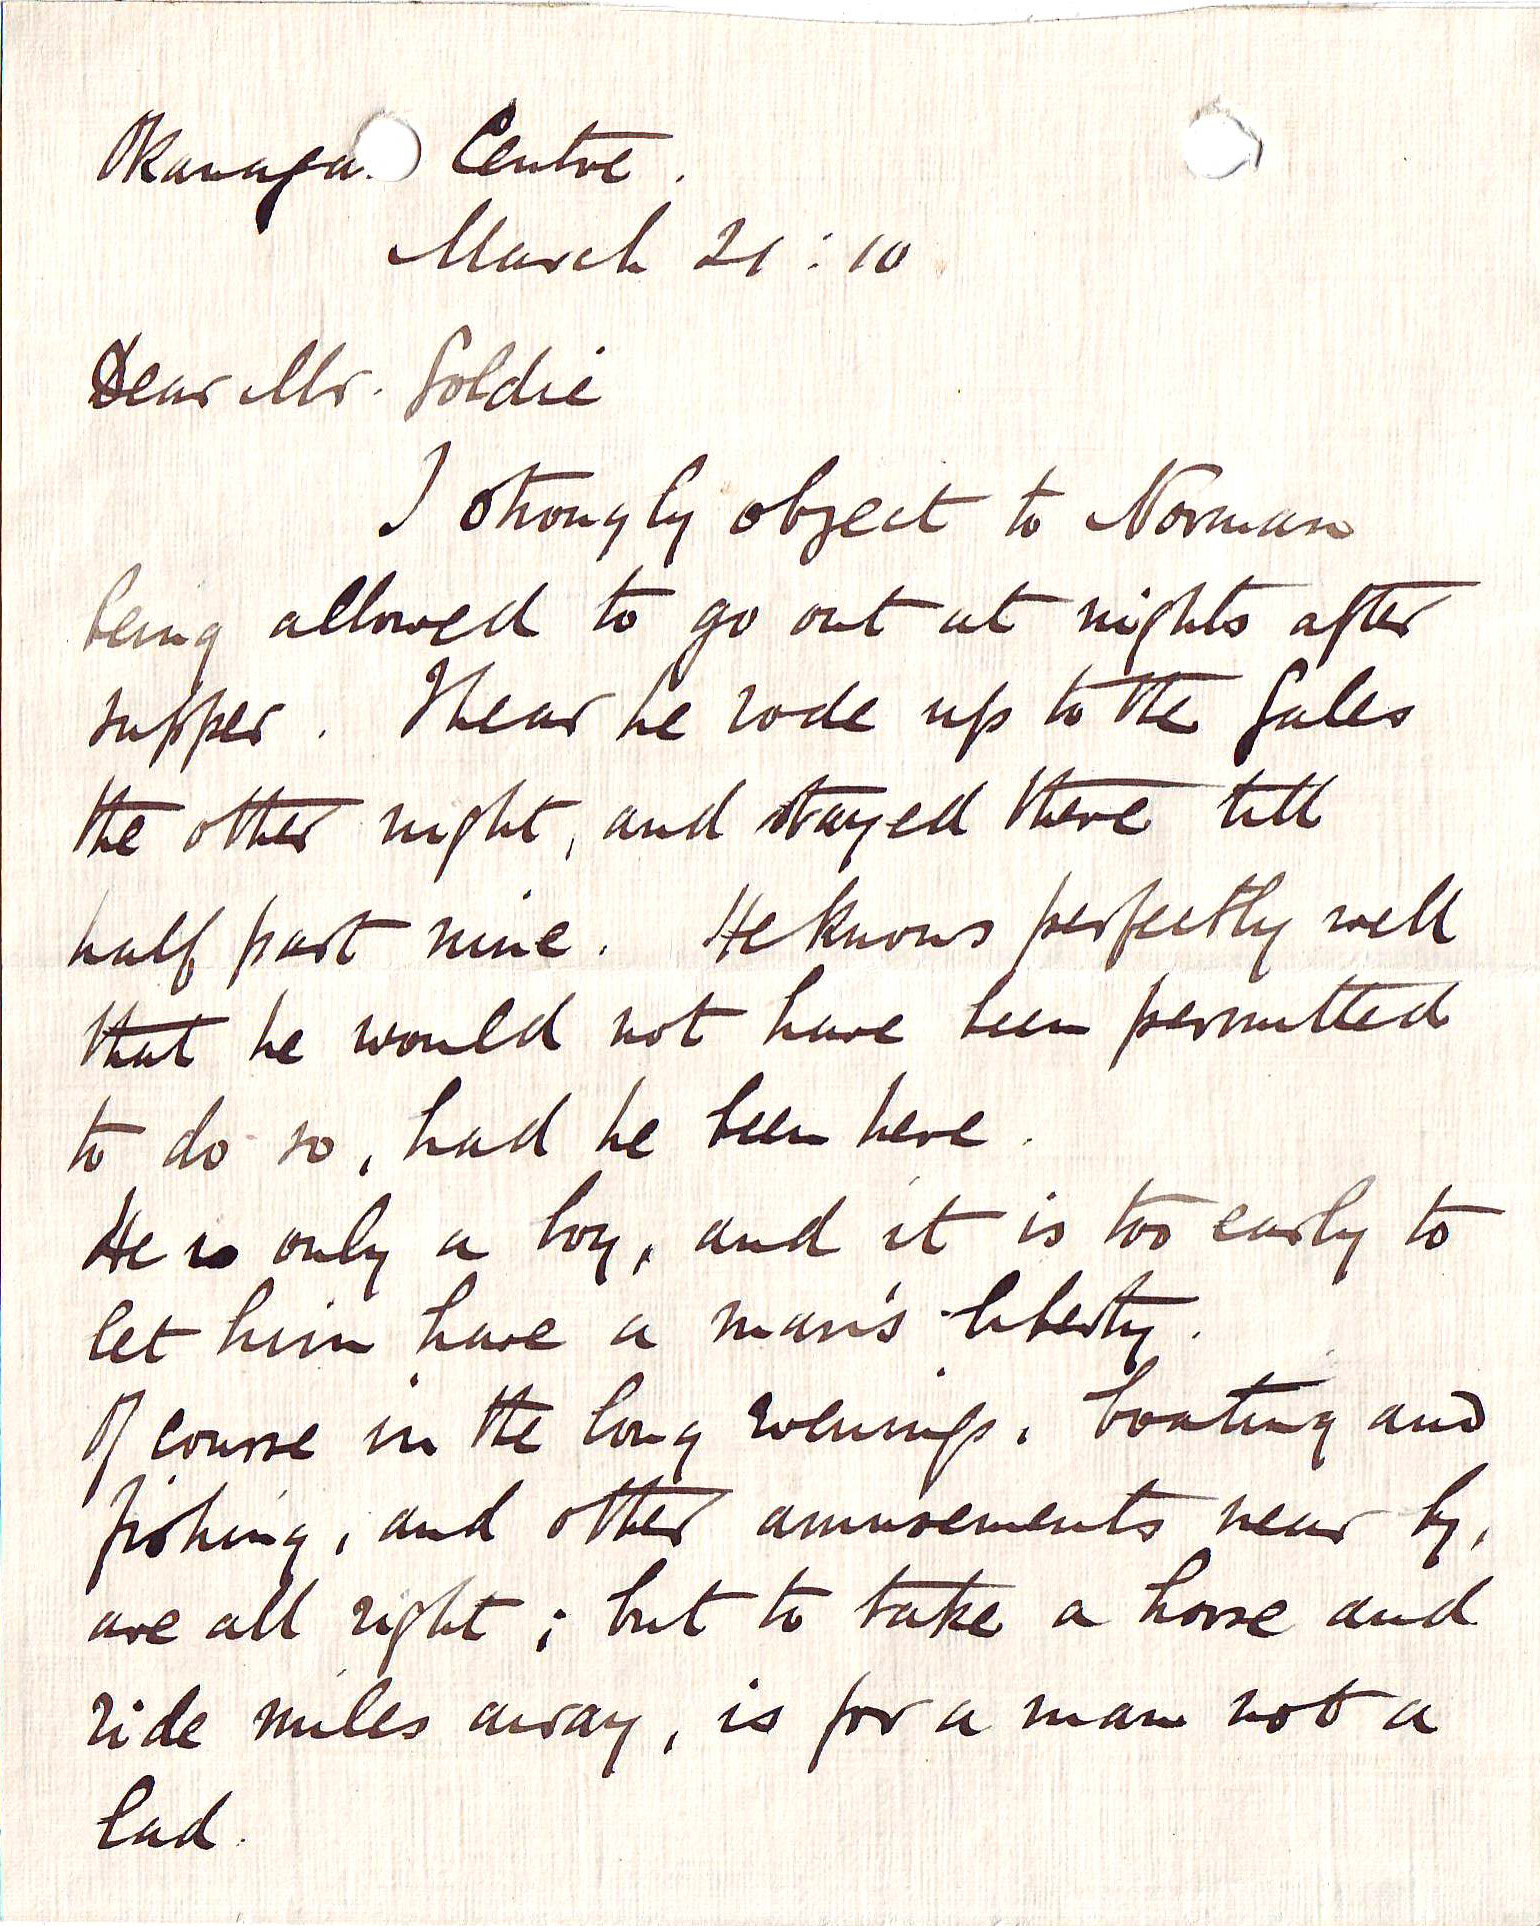 Okanaga. Centre.
March 21:10
Dear Mr. Goldie
I strongly object to Norman
being allowed to go out at nights after
supper. I hear he rode up to the Gales
the other night, and stayed there till
half past nine. He knows perfectly well
that he would not have been permitted
to do so, had he been here.
He is only a boy, and it is too early to
let him have a man's liberty.
Of course in the long evenings, boating and
fishing, and other amusements near by,
are all right; but to take a horse and
ride miles away, is for a man not a
lad.